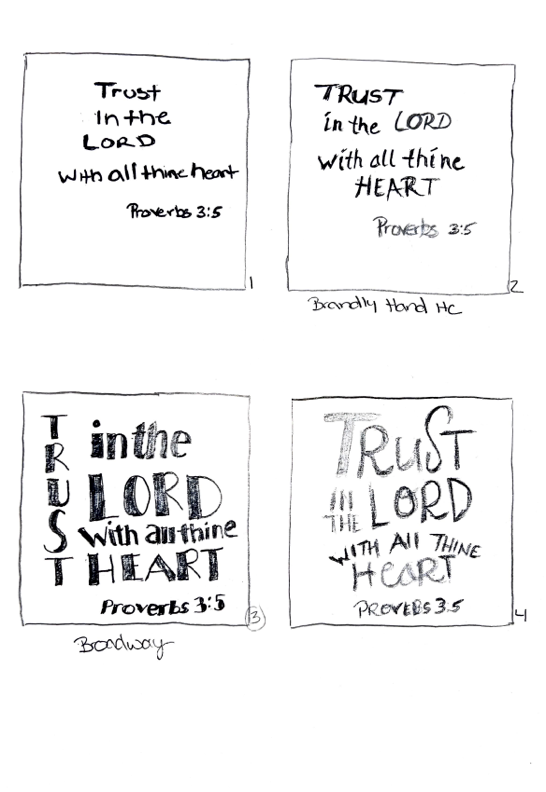 Trust
In the
LORD
With all thine heart
Proverbs 3:5
1
TRUST
in the LORD
with all thine
HEART
Proverbs 3:5
2
Brandly Hand HC
TRUST
in the
LORD
with all thine
HEART
Proverbs 3:5
3
Broadway
TRUST
IN
THE LORD
WITH All THINE
HeART
PROVERBS 3:5
4